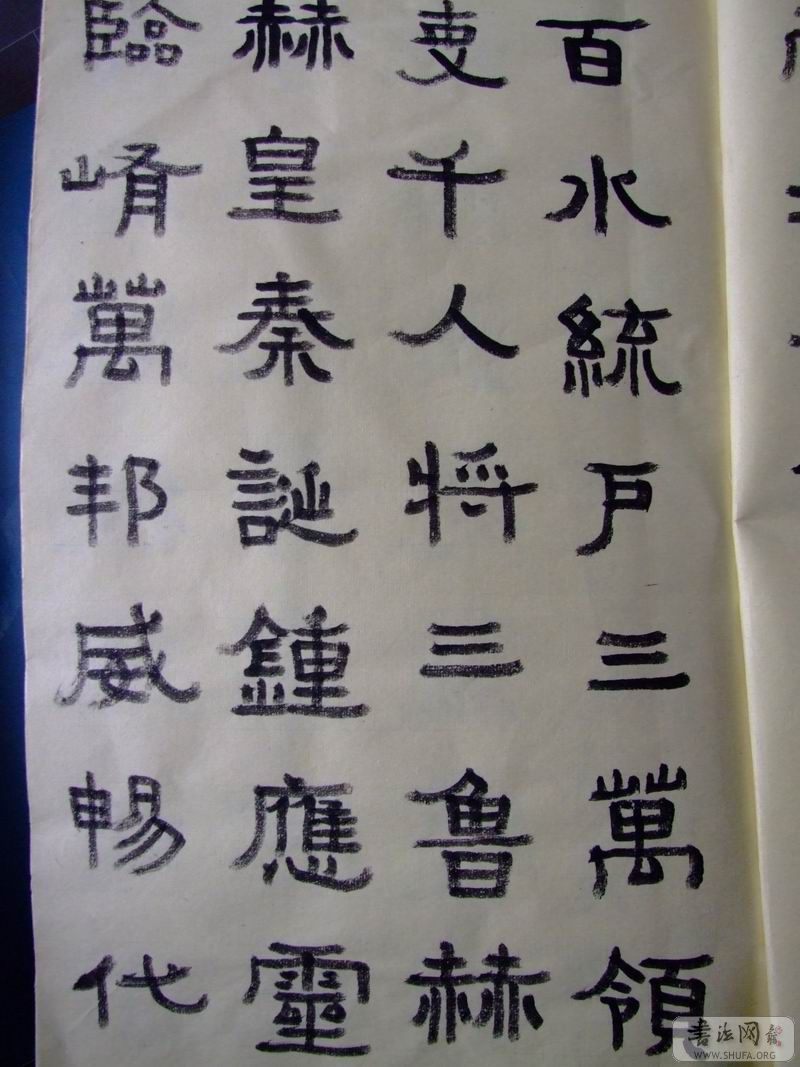 百水統户三萬領
吏千人將三鲁赫
赫皇秦誕鍾應靈
臨崤萬邦威暢代
書法网
WWW.SHUFA.ORG